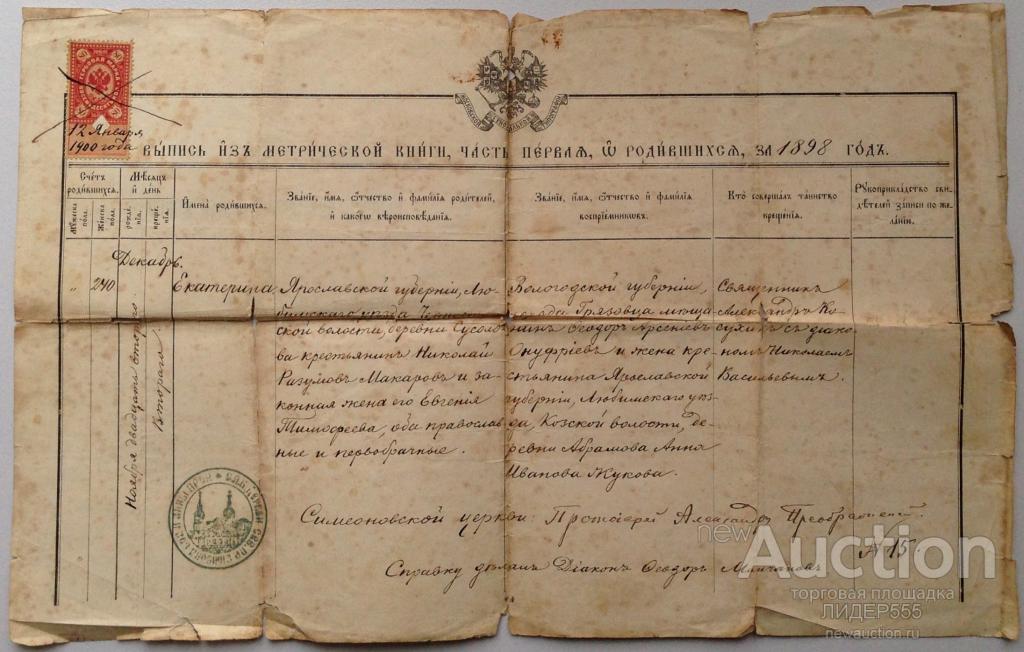 12 Января
1900 года
ВЫПИСЬ ИЗЪ МЕТРИЧЕСКОЙ КНИГИ, ЧАСТЬ ПЕРВАЯ, Ѡ РОДИВШИХСЯ, ЗА 1898 ГОДЪ.
Счетъ родившихся.
Мужеска пола.
Женска пола.
Мѣсяцъ и день
рожденія.
крещенія.
Имена родившихся.
Званіе, имя, отчество и фамилія родителей,
и какогѡ вѣроисповѣданія.
Званіе, имя, отчество и фамилія
воспріемниковъ.
Кто совершалъ таинство
крещенія.
Рукоприкладство свидѣтелей записи по желанію.
Декабрь.
Ноября двадцать второго.
Втораго.
" 240
Екатерина
Ярославской губерніи, Лю-
бимскаго уѣзда
ской волости, деревни Сусоло-
ва крестьянинъ Николай
Разумовъ Макаровъ и за-
конная жена его Евгенія
Тимофеева, оба православ-
ные и первобрачные.
Вологодской губерніи,
города Грязовца мѣща-
нинъ Ѳеодоръ Арсеніевъ
Онуфріевъ и жена кре-
стьянина Ярославской
губерніи, Любимскаго уѣз-
да, Козской волости, де-
ревни Абрамова Анна
Иванова Жукова.
Священникъ
Александръ Ко-
сухинъ съ діако-
номъ Николаемъ
Васильевымъ.
Симеоновской церкви Протоіерей Александръ Преображенскій.
№ 15.
Справку дѣлалъ Діаконъ Ѳеодоръ
newAuction
торговая площадка
ЛИДЕР555
newauction.ru